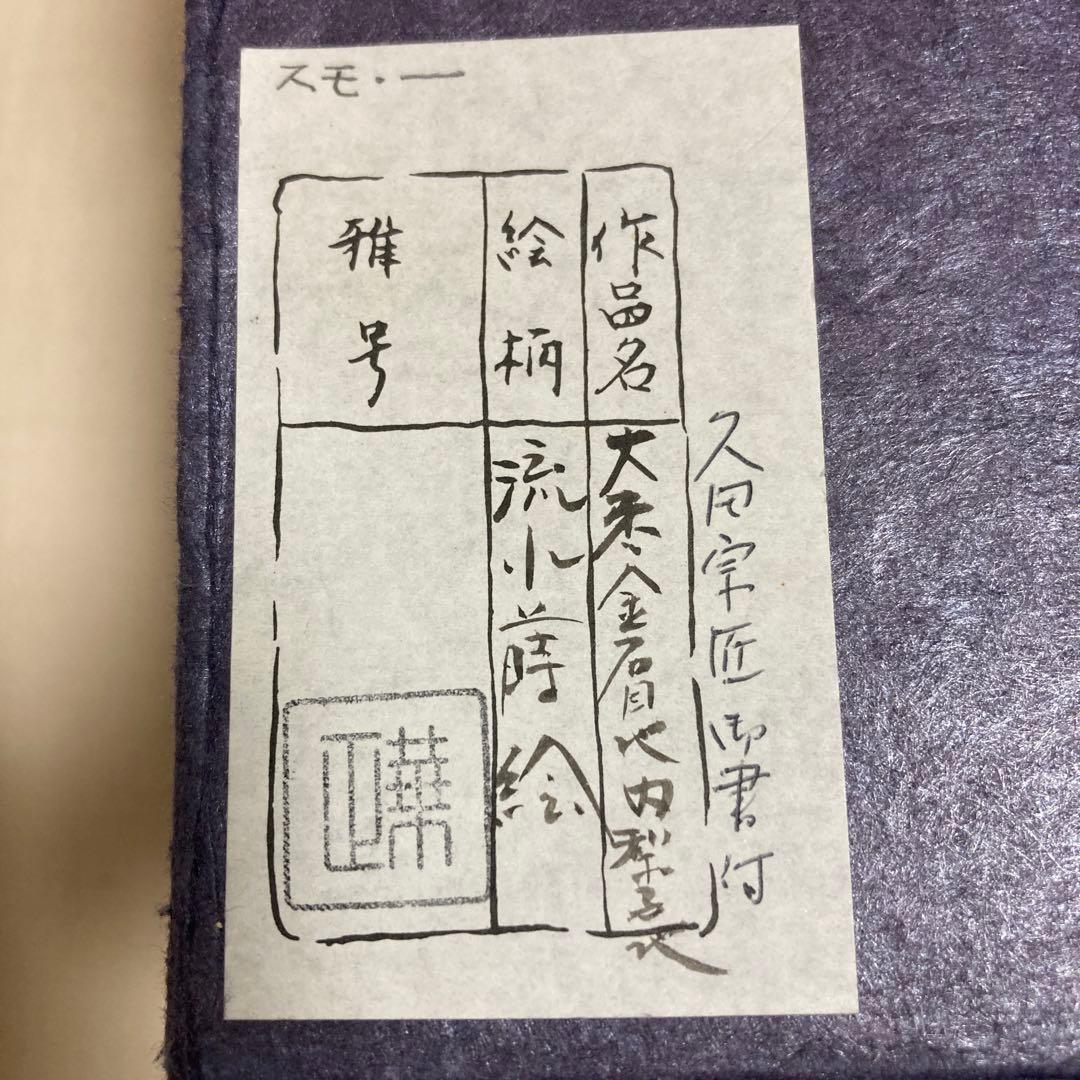 スモ・一
久田宗匠御書付
作品名
大棗金石目地内梨子地
絵柄
流水蒔絵
雅号